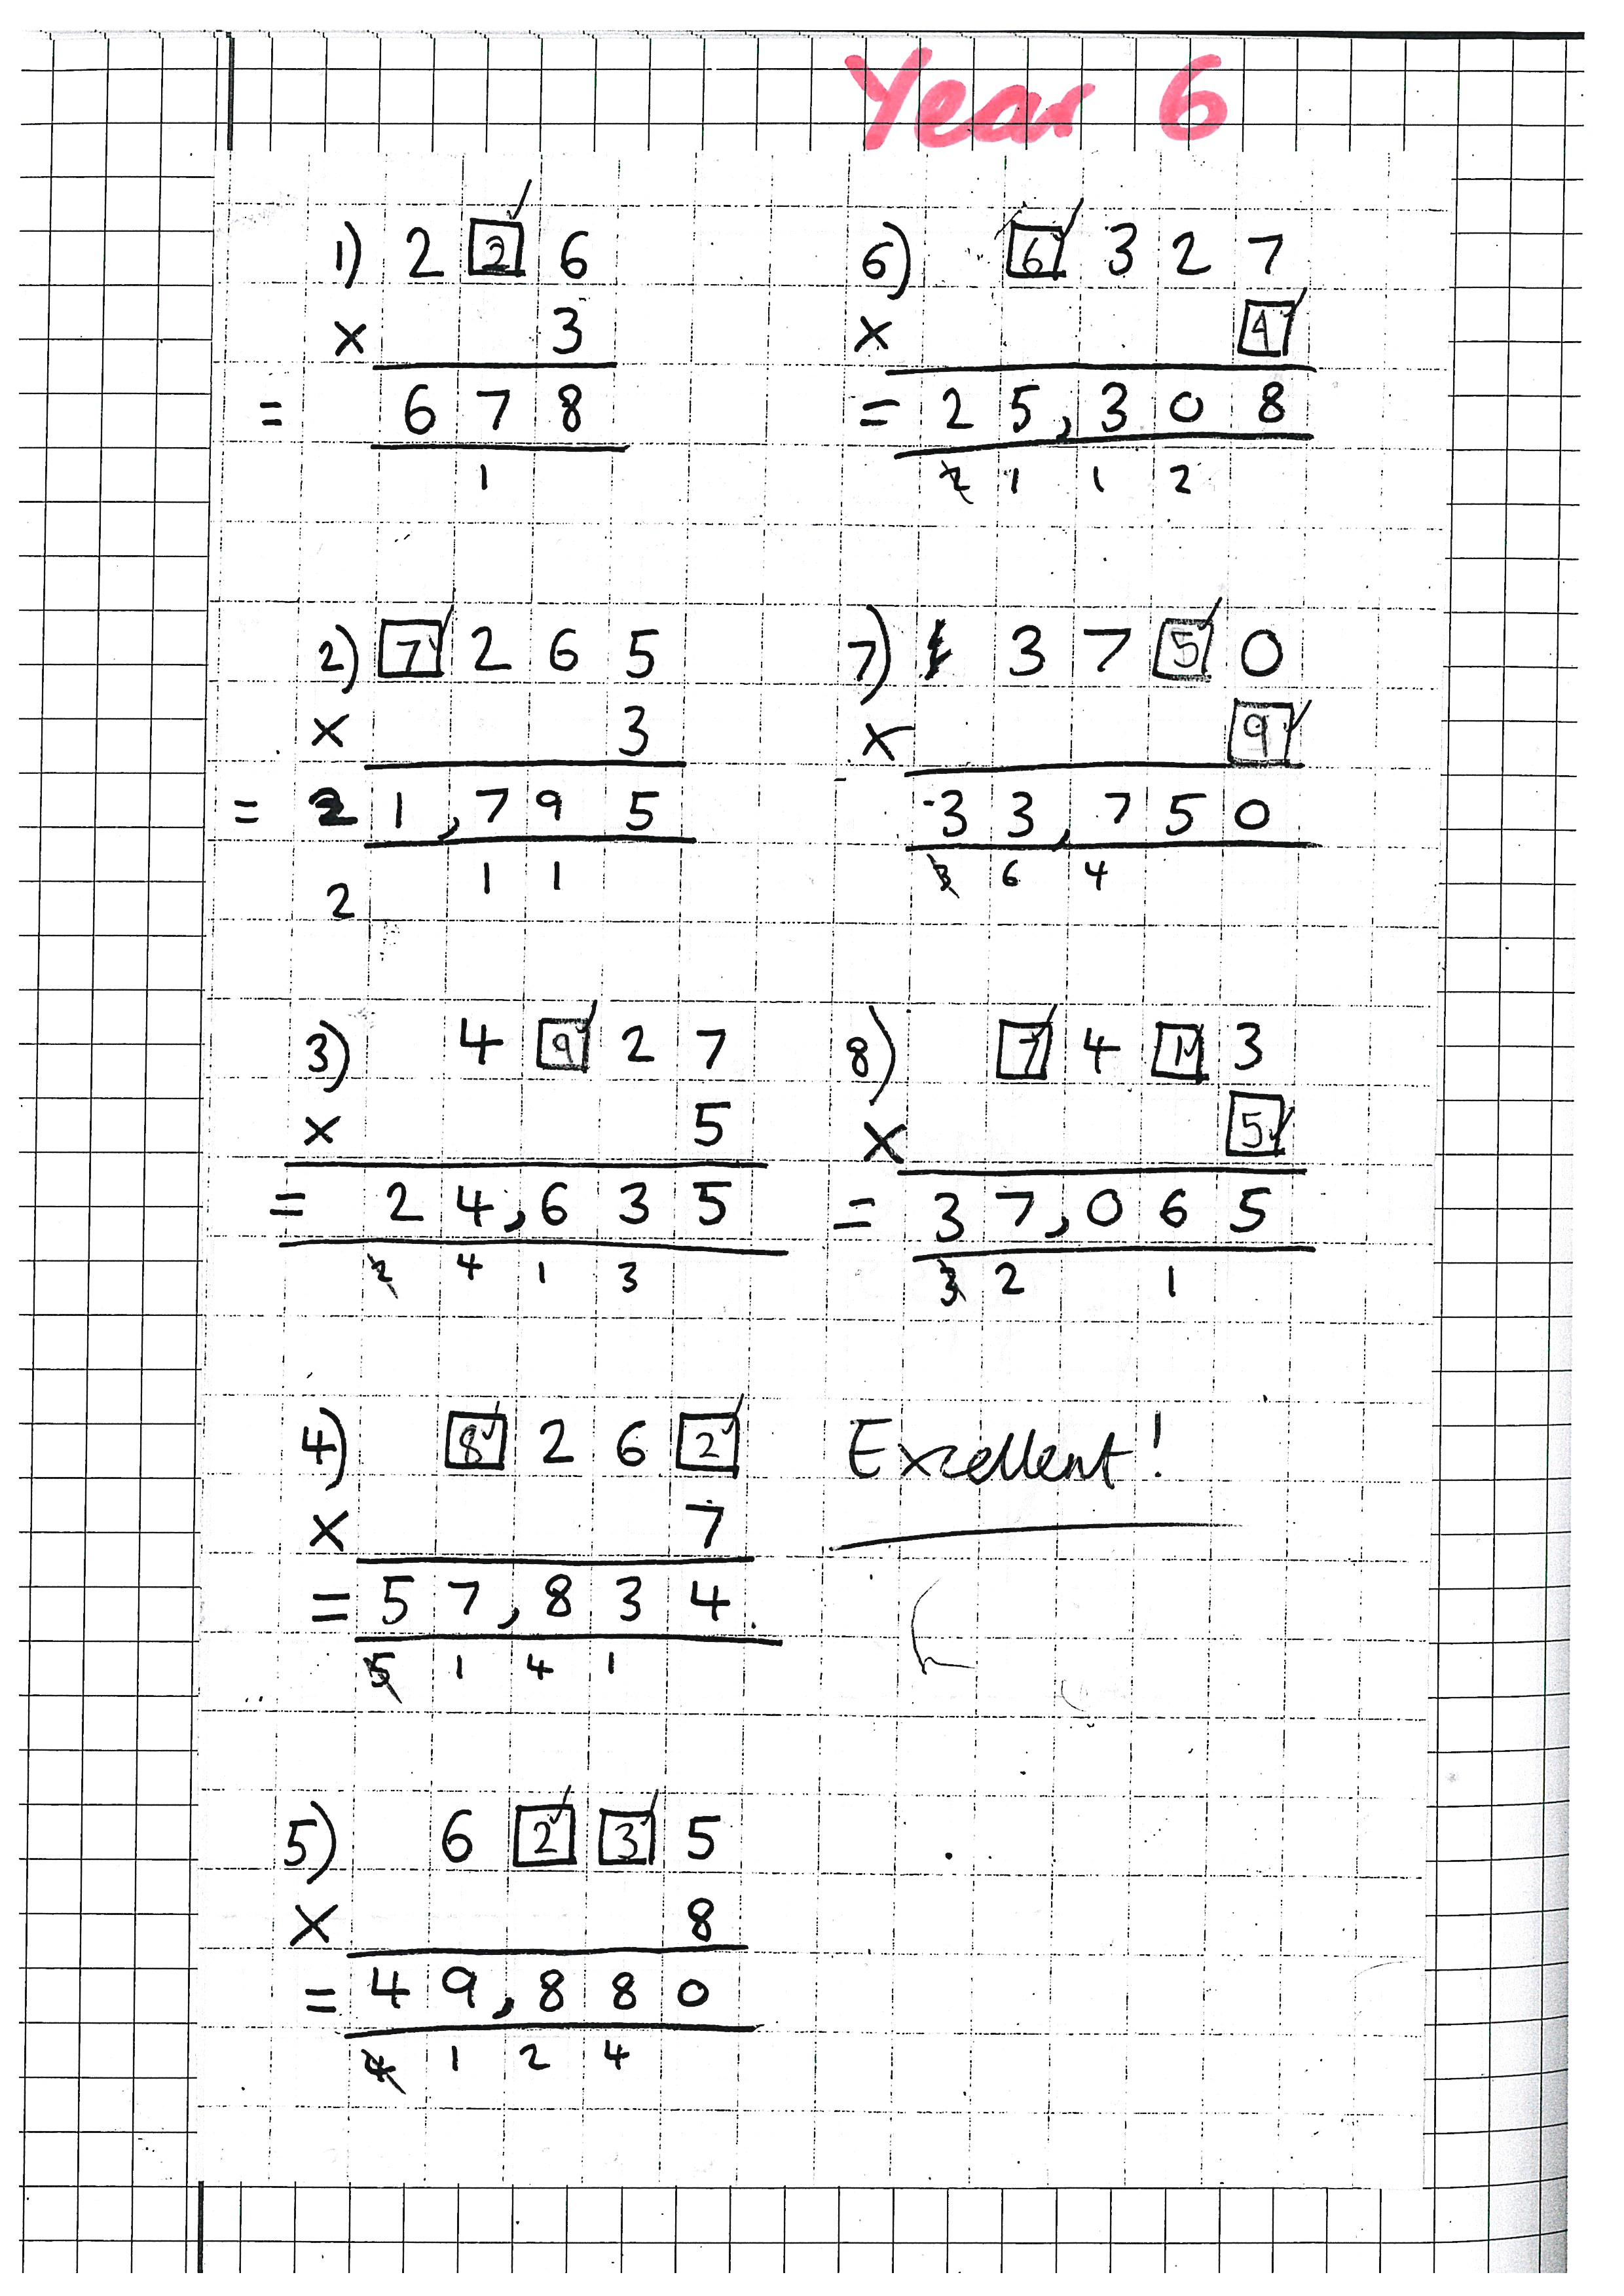 Year 6
1) 2 2 6
× 3
= 6 7 8
1
2) 7 2 6 5
× 3
= 2 1,7 9 5
1 1
2
3) 4 9 2 7
× 5
= 2 4,6 3 5
2 4 1 3
4) 8 2 6 2
× 7
= 5 7,8 3 4
5 1 4 1
5) 6 2 3 5
× 8
= 4 9,8 8 0
4 1 2 4
6) 6 3 2 7
× 4
= 2 5,3 0 8
2 1 1 2
7) 3 7 5 0
× 9
3 3,7 5 0
3 6 4
8) 7 4 1 3
× 5
= 3 7,0 6 5
3 2 1
Excellent!